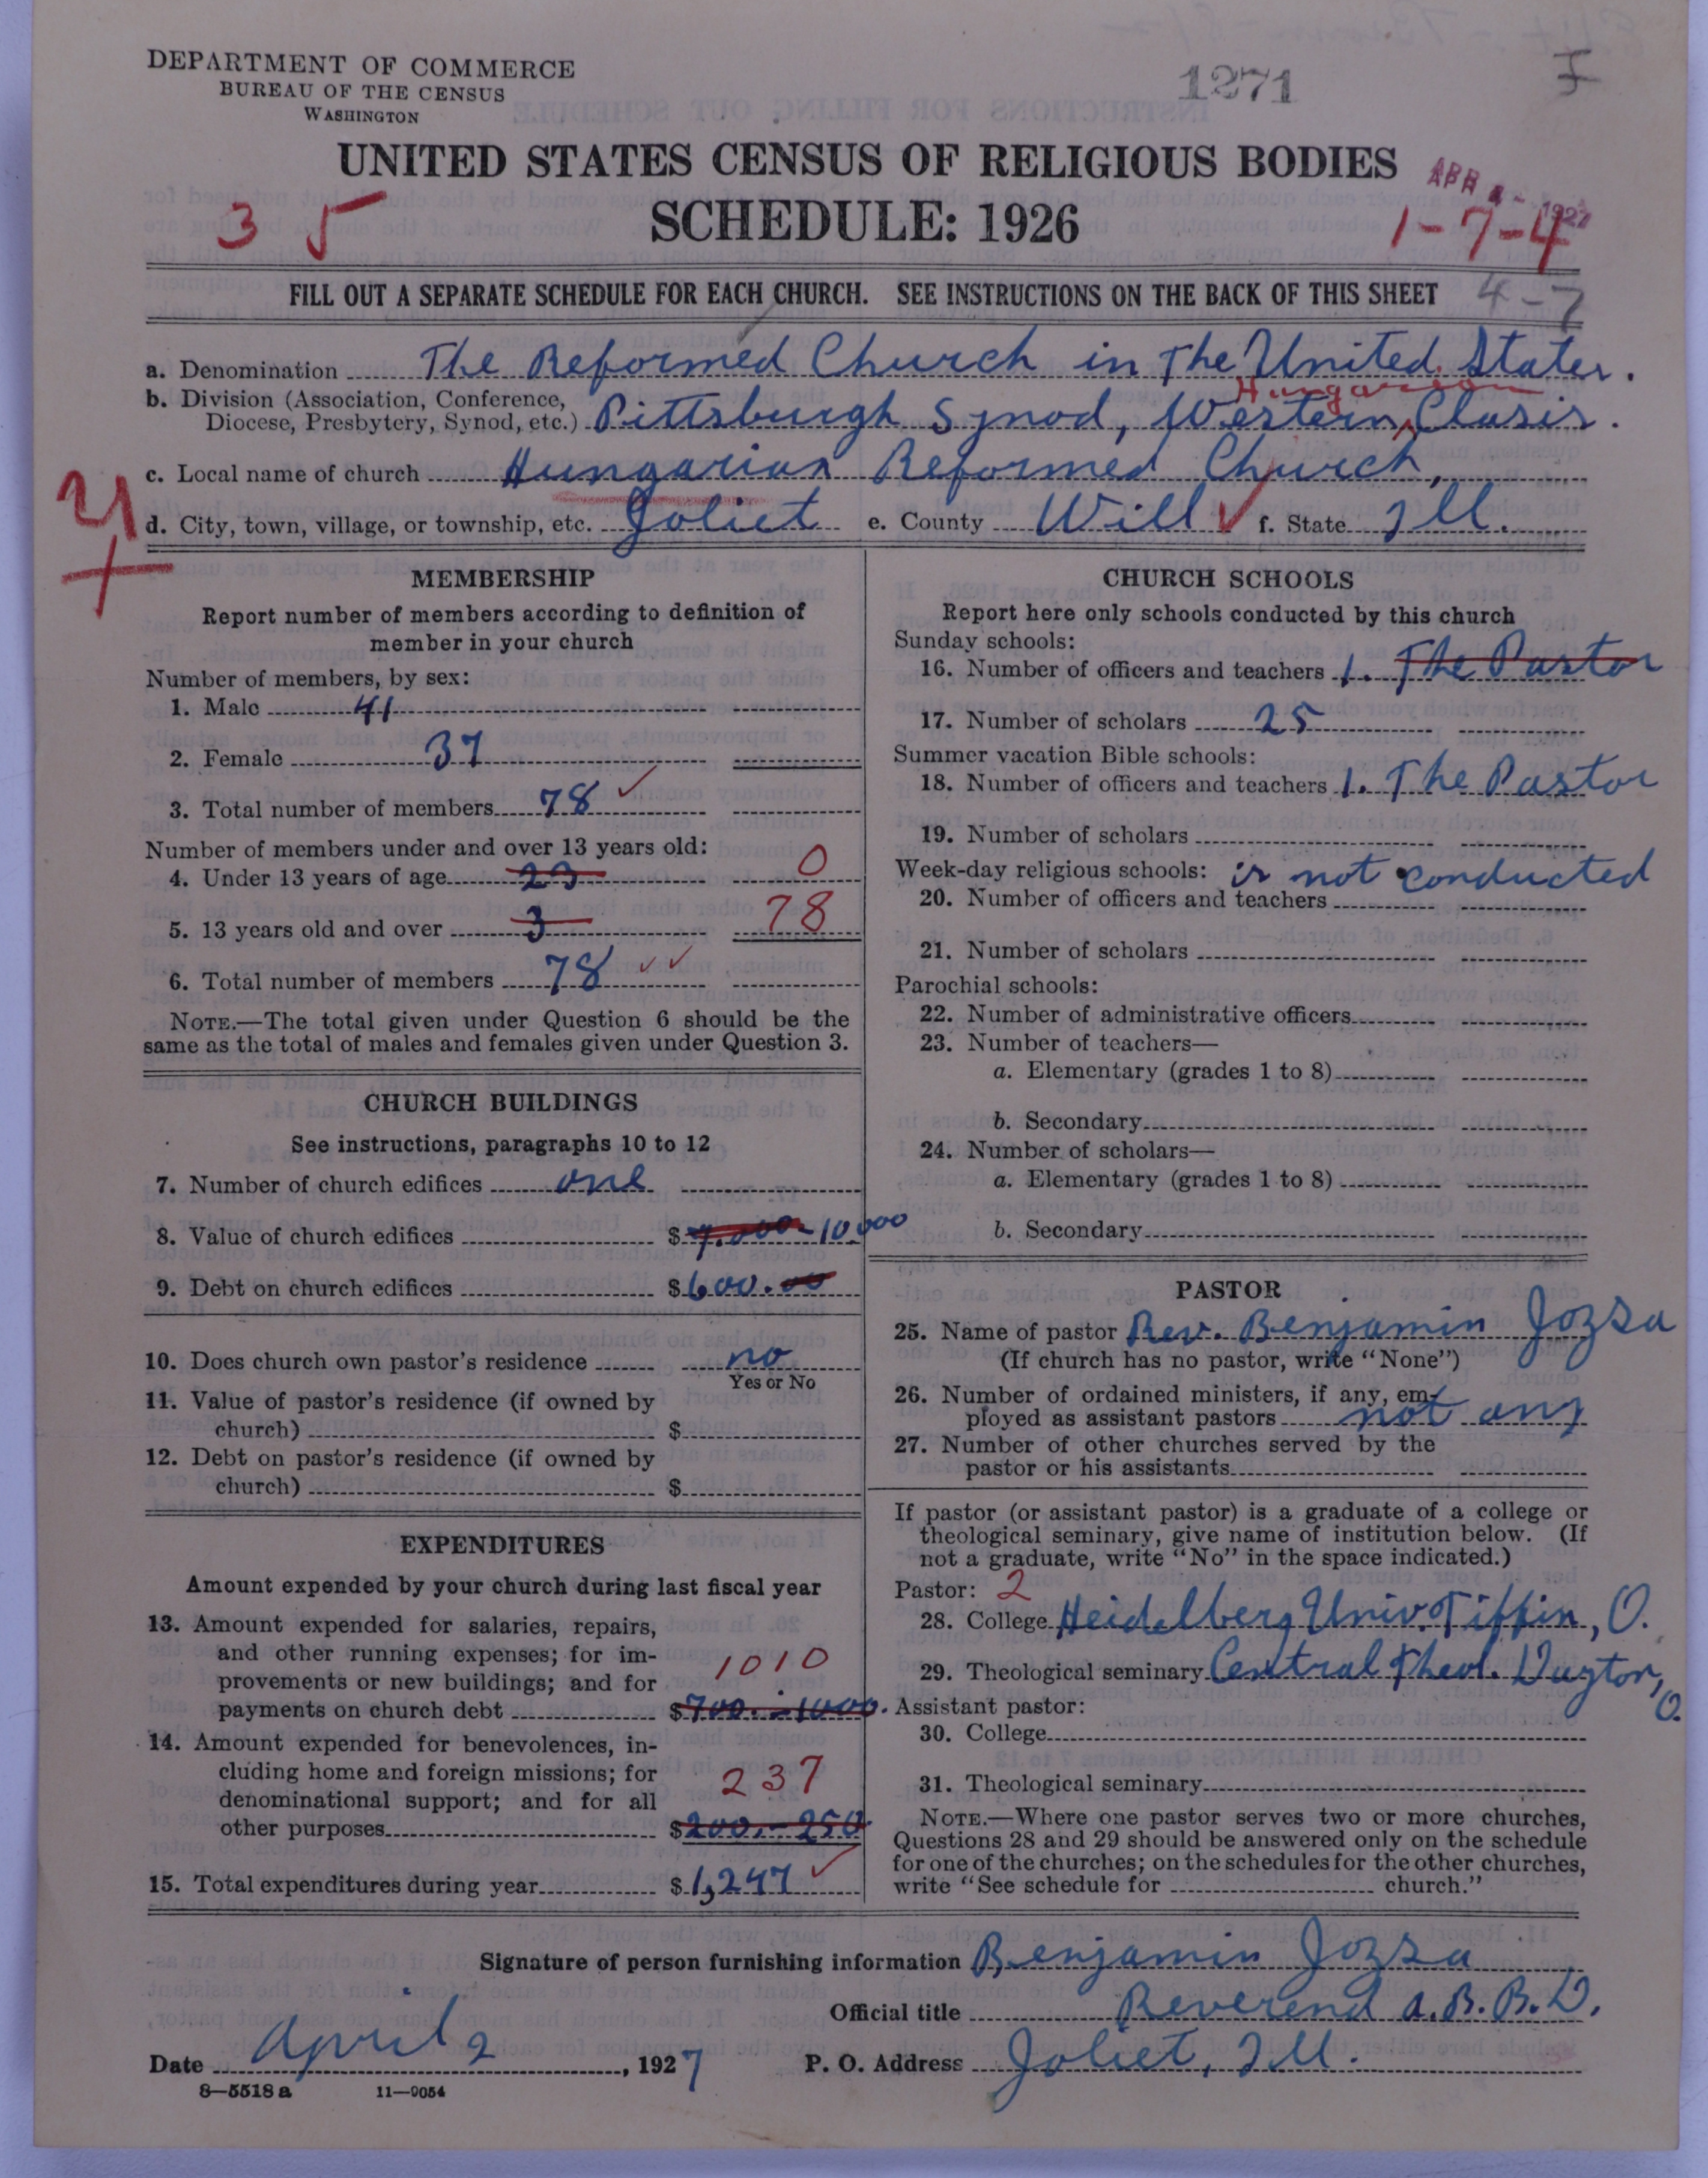 DEPARTMENT OF COMMERCE
BUREAU OF THE CENSUS
WASHINGTON
1271
UNITED STATES CENSUS OF RELIGIOUS BODIES
SCHEDULE: 1926
APR 1927
3 5
1-7-4
FILL OUT A SEPARATE SCHEDULE FOR EACH CHURCH. SEE INSTRUCTIONS ON THE BACK OF THIS SHEET
4-7
a. Denomination The Reformed Church in The United States.
Hungarian
b. Division (Association, Conference,
Diocese, Presbytery, Synod, etc.) Pittsburgh Synod, Western Clasis.
c. Local name of church Hungarian Reformed Church,
d. City, town, village, or township, etc. Joliet e. County Will f. State Ill.
MEMBERSHIP
Report number of members according to definition of
member in your church
Number of members, by sex:
1. Male 41
2. Female 37
3. Total number of members 78
Number of members under and over 13 years old:
4. Under 13 years of age 23 0
5. 13 years old and over 3 78
6. Total number of members 78
NOTE.—The total given under Question 6 should be the
same as the total of males and females given under Question 3.
CHURCH BUILDINGS
See instructions, paragraphs 10 to 12
7. Number of church edifices one
8. Value of church edifices $7.000- 10000
9. Debt on church edifices $600.00
10. Does church own pastor's residence no
Yes or No
11. Value of pastor's residence (if owned by
church) $
12. Debt on pastor's residence (if owned by
church) $
EXPENDITURES
Amount expended by your church during last fiscal year
13. Amount expended for salaries, repairs,
and other running expenses; for im-
provements or new buildings; and for
1010
payments on church debt $700.-1000.
14. Amount expended for benevolences, in-
cluding home and foreign missions; for
denominational support; and for all
237
other purposes $200.-250
15. Total expenditures during year $1,247
CHURCH SCHOOLS
Report here only schools conducted by this church
Sunday schools:
16. Number of officers and teachers 1. The Pastor
17. Number of scholars 25
Summer vacation Bible schools:
18. Number of officers and teachers 1. The Pastor
19. Number of scholars
Week-day religious schools: is not conducted
20. Number of officers and teachers
21. Number of scholars
Parochial schools:
22. Number of administrative officers
23. Number of teachers—
a. Elementary (grades 1 to 8)
b. Secondary
24. Number of scholars—
a. Elementary (grades 1 to 8)
b. Secondary
PASTOR
25. Name of pastor Rev. Benjamin Jozsa
(If church has no pastor, write "None")
26. Number of ordained ministers, if any, em-
ployed as assistant pastors not any
27. Number of other churches served by the
pastor or his assistants
If pastor (or assistant pastor) is a graduate of a college or
theological seminary, give name of institution below. (If
not a graduate, write "No" in the space indicated.)
Pastor: 2
28. College Heidelberg Univ. Tiffin, O.
29. Theological seminary Central Theol. Dayton, O.
Assistant pastor:
30. College
31. Theological seminary
NOTE.—Where one pastor serves two or more churches,
Questions 28 and 29 should be answered only on the schedule
for one of the churches; on the schedules for the other churches,
write "See schedule for church."
Signature of person furnishing information Benjamin Jozsa
Official title Reverend A.B. B.D.
Date April 2, 1927 P. O. Address Joliet, Ill.
8—5518 a 11—9054